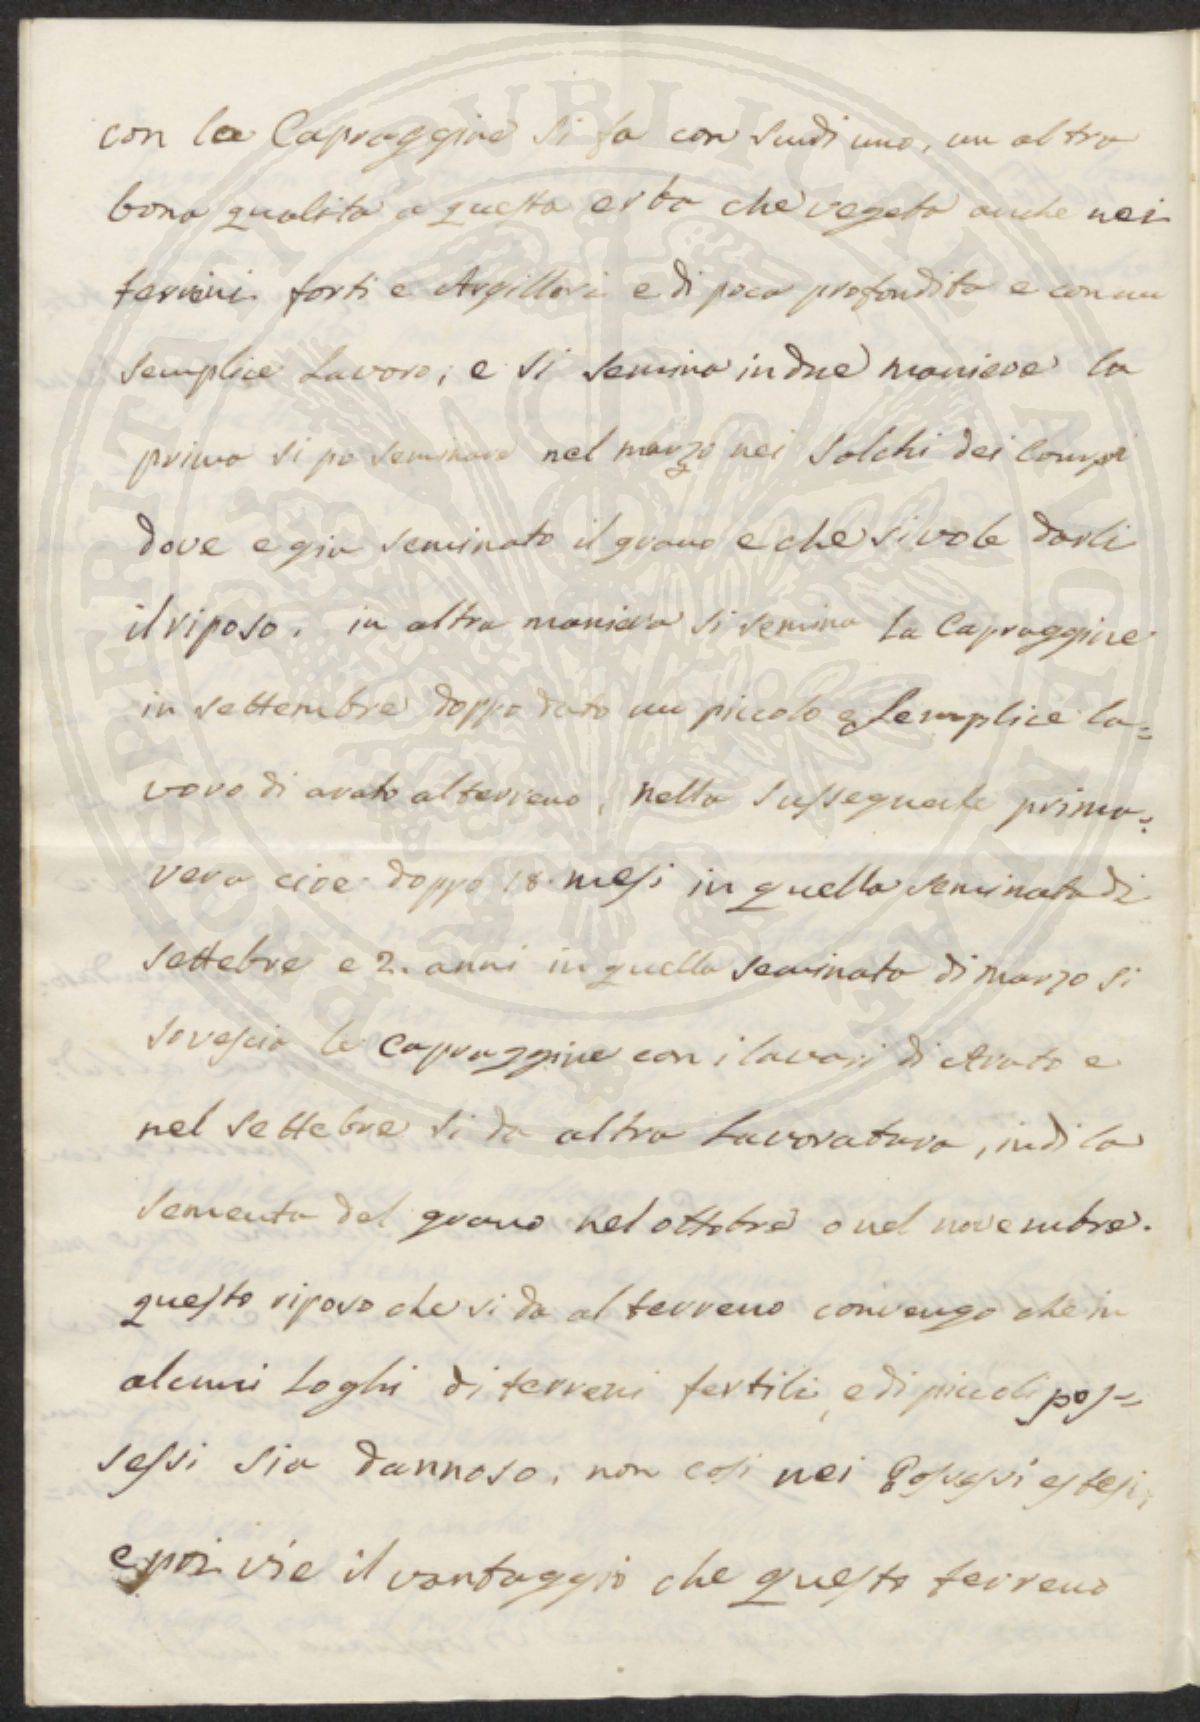 con la Capraggine si fa con sudi uno, un altra
bona qualita a questa erba che vegeta anche nei
terrini forti e Argillori e di poca profondita e con un
semplice Lavoro; e si semina in due maniere la
prima si po seminare nel marzo nei Solchi dei Campi
dove e gia seminato il grano e che si vole darli
il riposo. in altra maniera si semina La Capraggine
in settembre doppo dato un piccolo e Semplice la=
voro di arato al terreno, nella Sussequente prima=
vera cioe doppo 18. mesi in quella seminata di
settebre e 2. anni in quella seminata di marzo si
sovescia la Capraggine con i lavori di Arato e
nel settebre si da altra Lavoratura, indi la
sementa del grano nel ottobre o nel novembre.
questo riposo che si da al terreno convengo che in
alcuni Loghi di terreni fertili, e di piccoli pos=
sessi sia dannoso, non cosi nei Possessi estesi,
e poi vie il vantaggio che questo terreno
PROSPERITATI PVBLICAE AVGENDAE